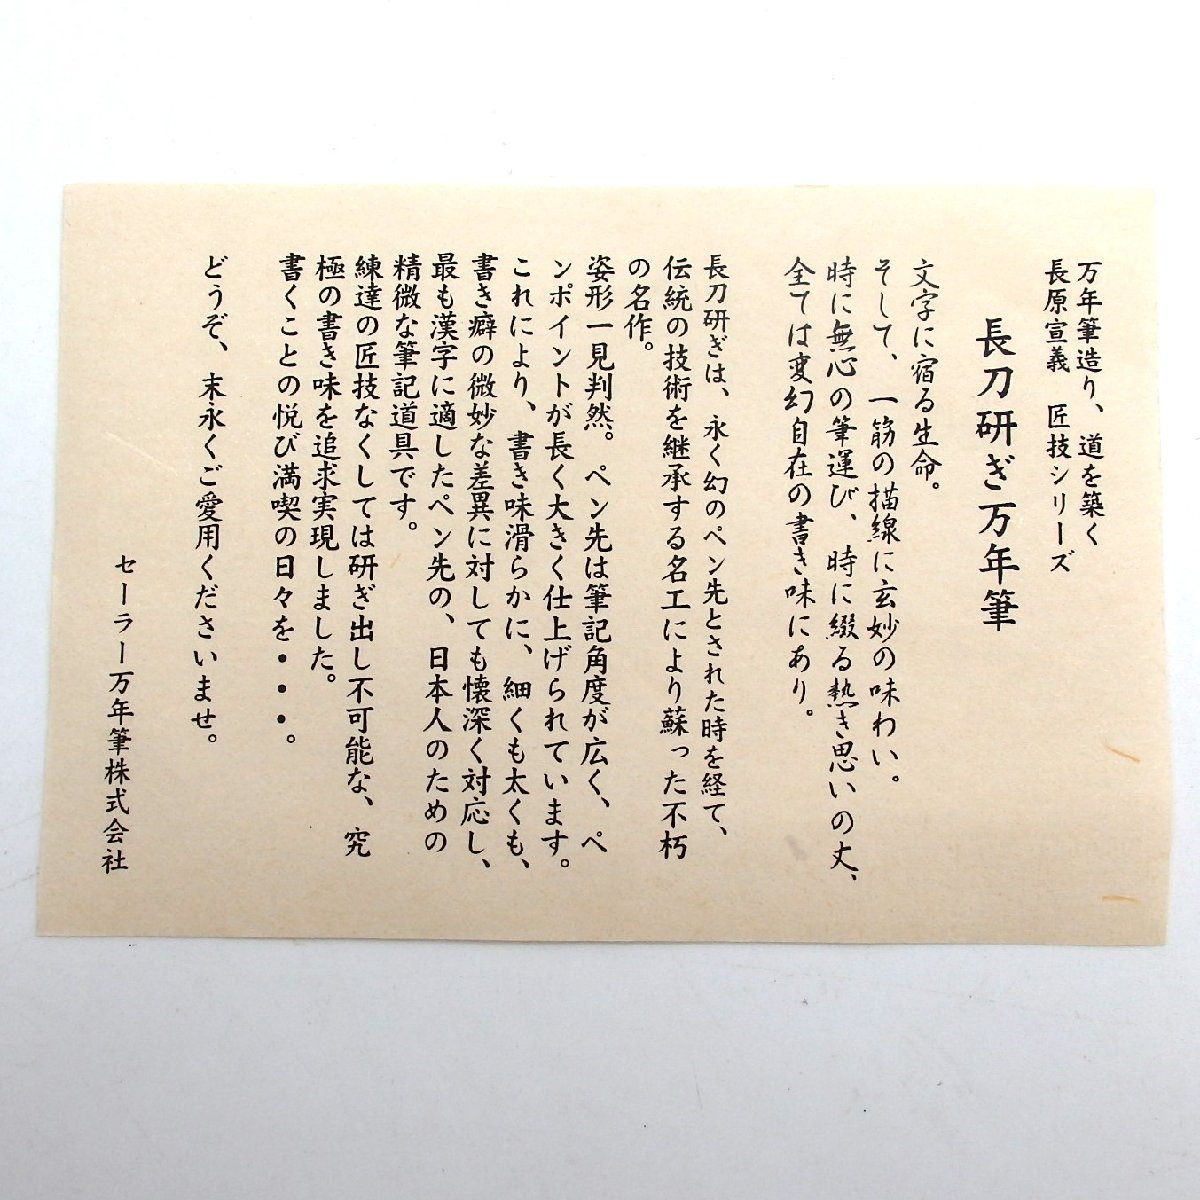 万年筆造り、道を築く
長原宣義　匠技シリーズ
長刀研ぎ万年筆
文字に宿る生命。
そして、一筋の描線に玄妙の味わい。
時に無心の筆運び、時に綴る熱き思いの丈、
全ては変幻自在の書き味にあり。
長刀研ぎは、永く幻のペン先とされた時を経て、
伝統の技術を継承する名工により蘇った不朽
の名作。
姿形一見判然。ペン先は筆記角度が広く、ペ
ンポイントが長く大きく仕上げられています。
これにより、書き味滑らかに、細くも太くも、
書き癖の微妙な差異に対しても懐深く対応し、
最も漢字に適したペン先の、日本人のための
精微な筆記道具です。
練達の匠技なくしては研ぎ出し不可能な、究
極の書き味を追求実現しました。
書くことの悦び満喫の日々を・・・。
どうぞ、末永くご愛用くださいませ。
セーラー万年筆株式会社